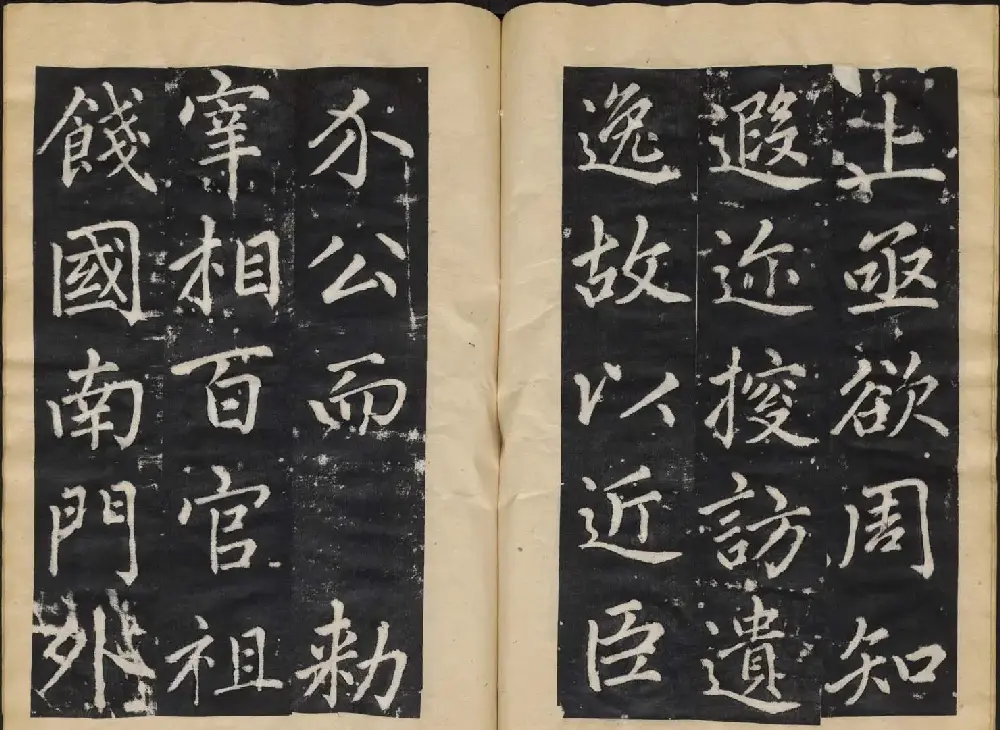 上亟欲周知
遐迩搜訪遺
逸故以近臣
介公而勑
宰相百官祖
餞國南門外